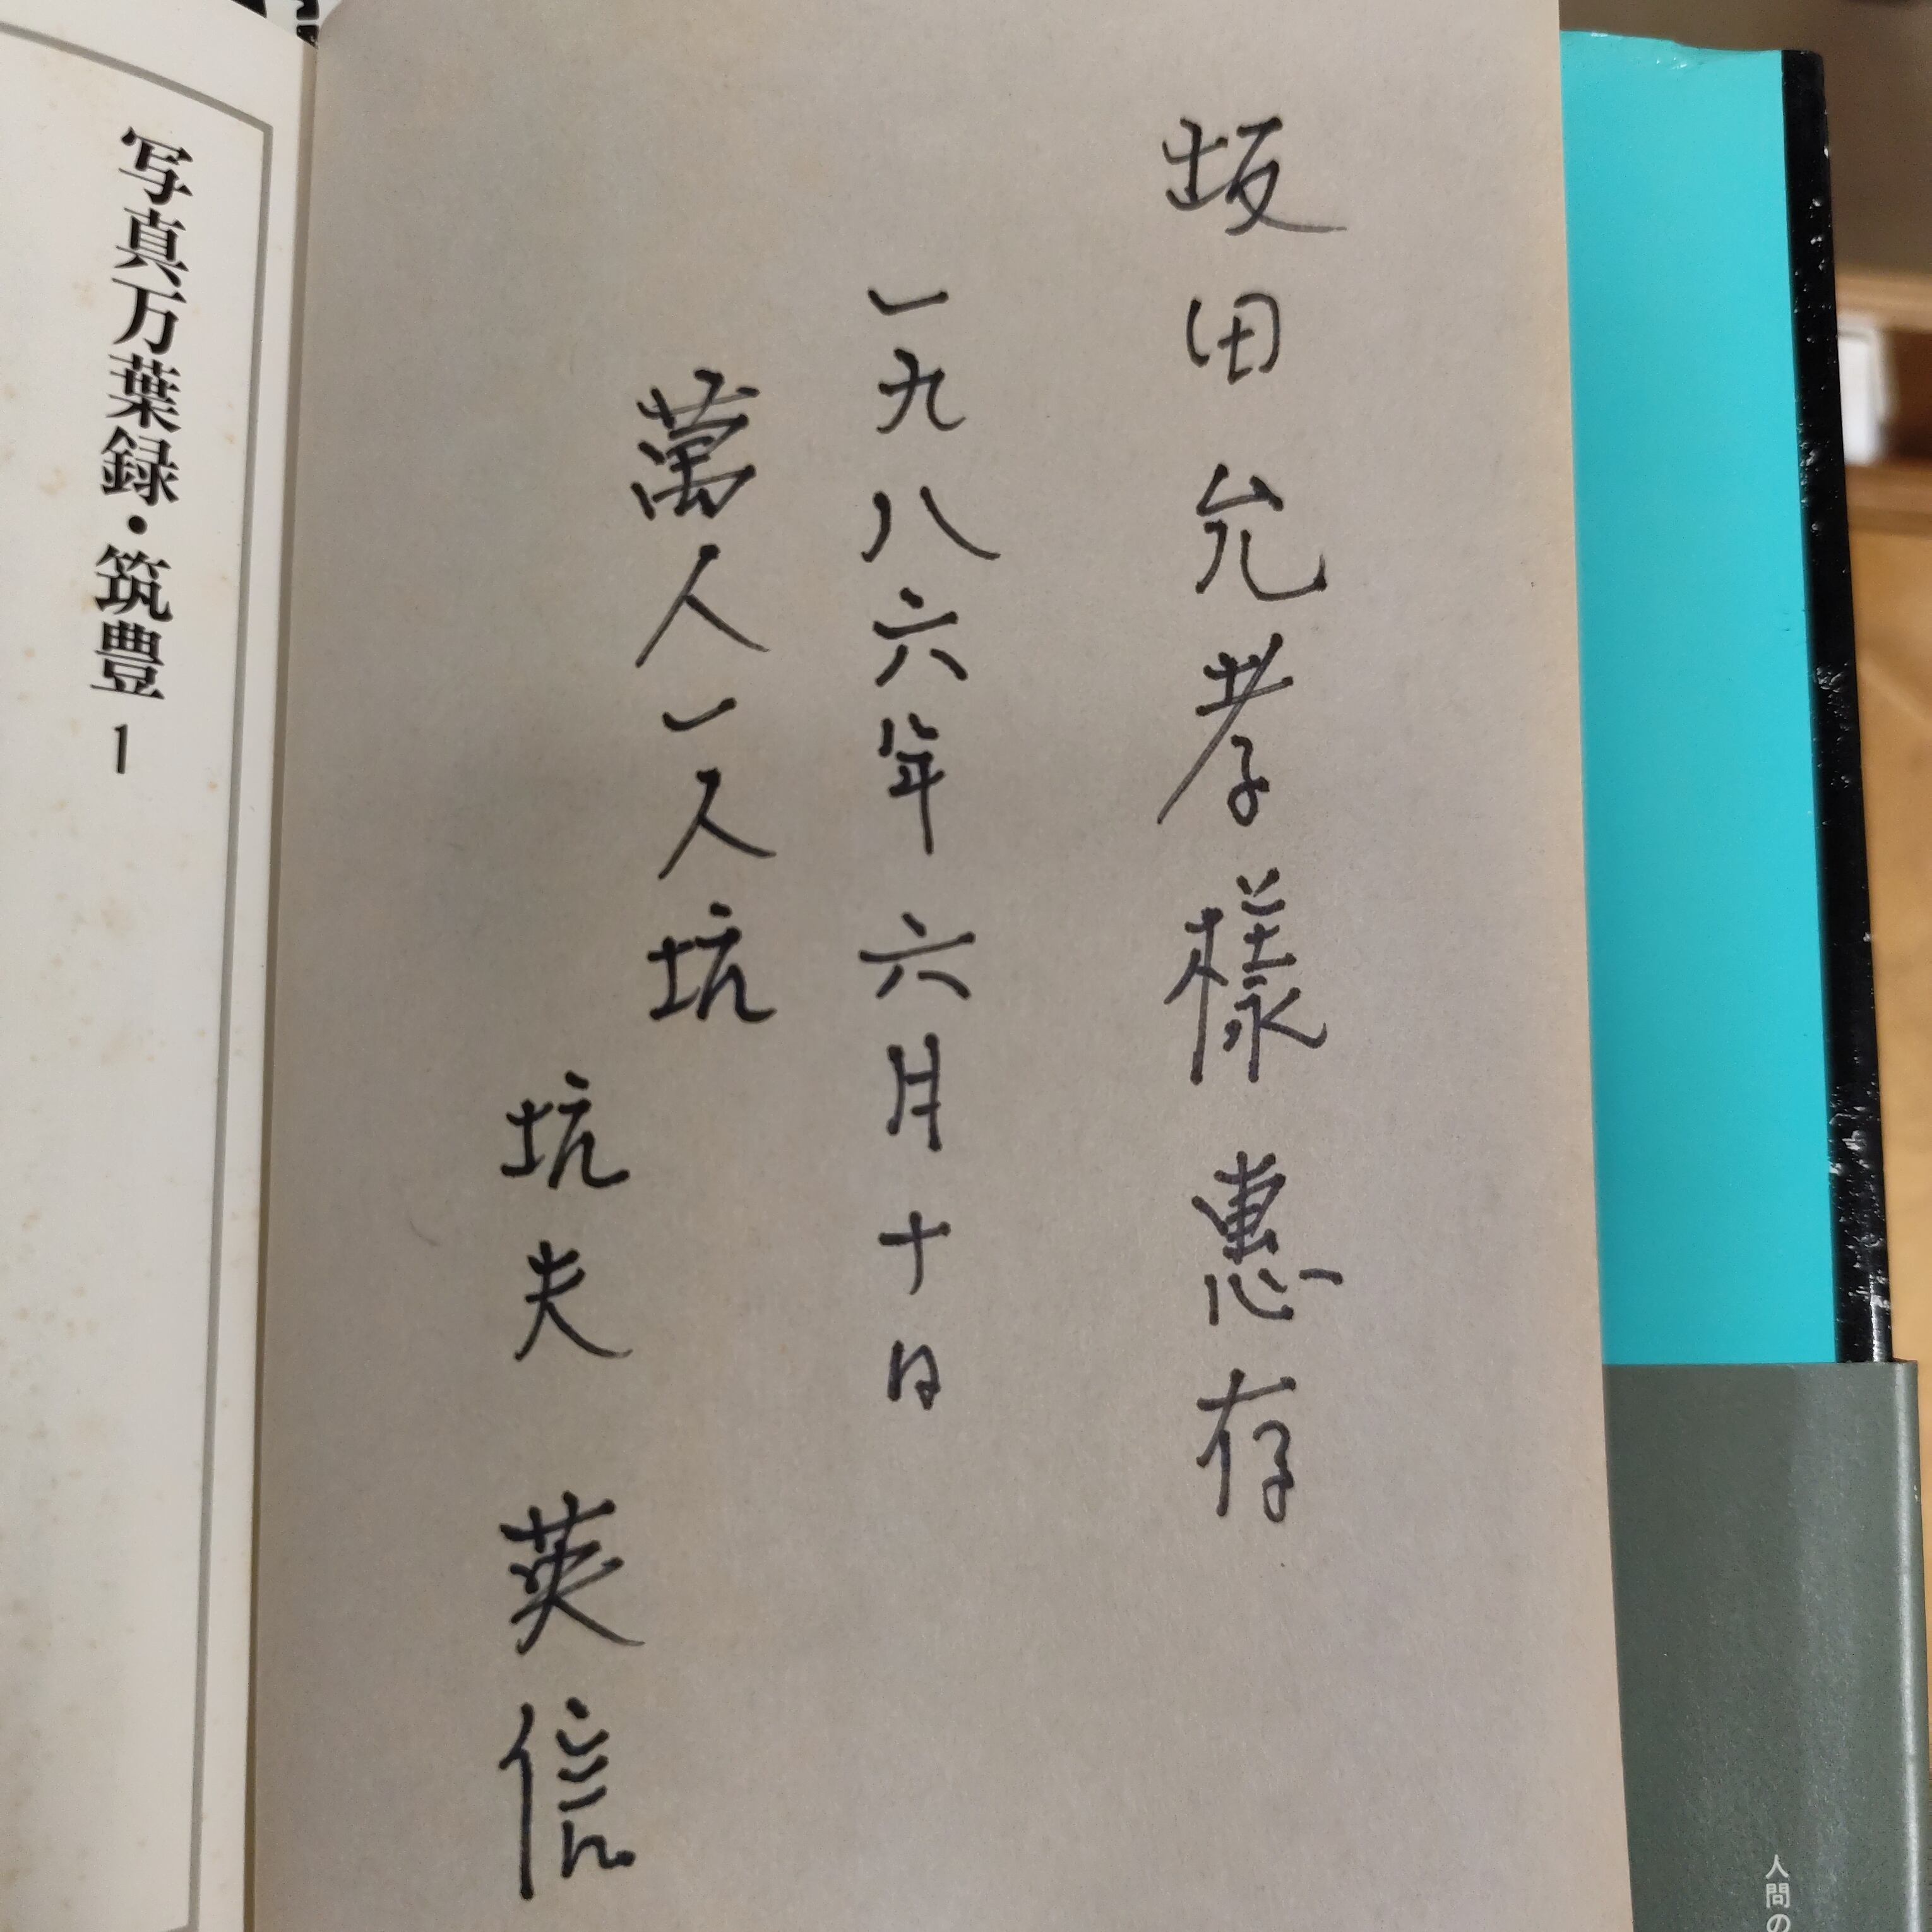 坂田允孝様 惠存
一九八六年六月十日
萬人一人坑
坑夫 英信
写真万葉録・筑豊 1
人間の